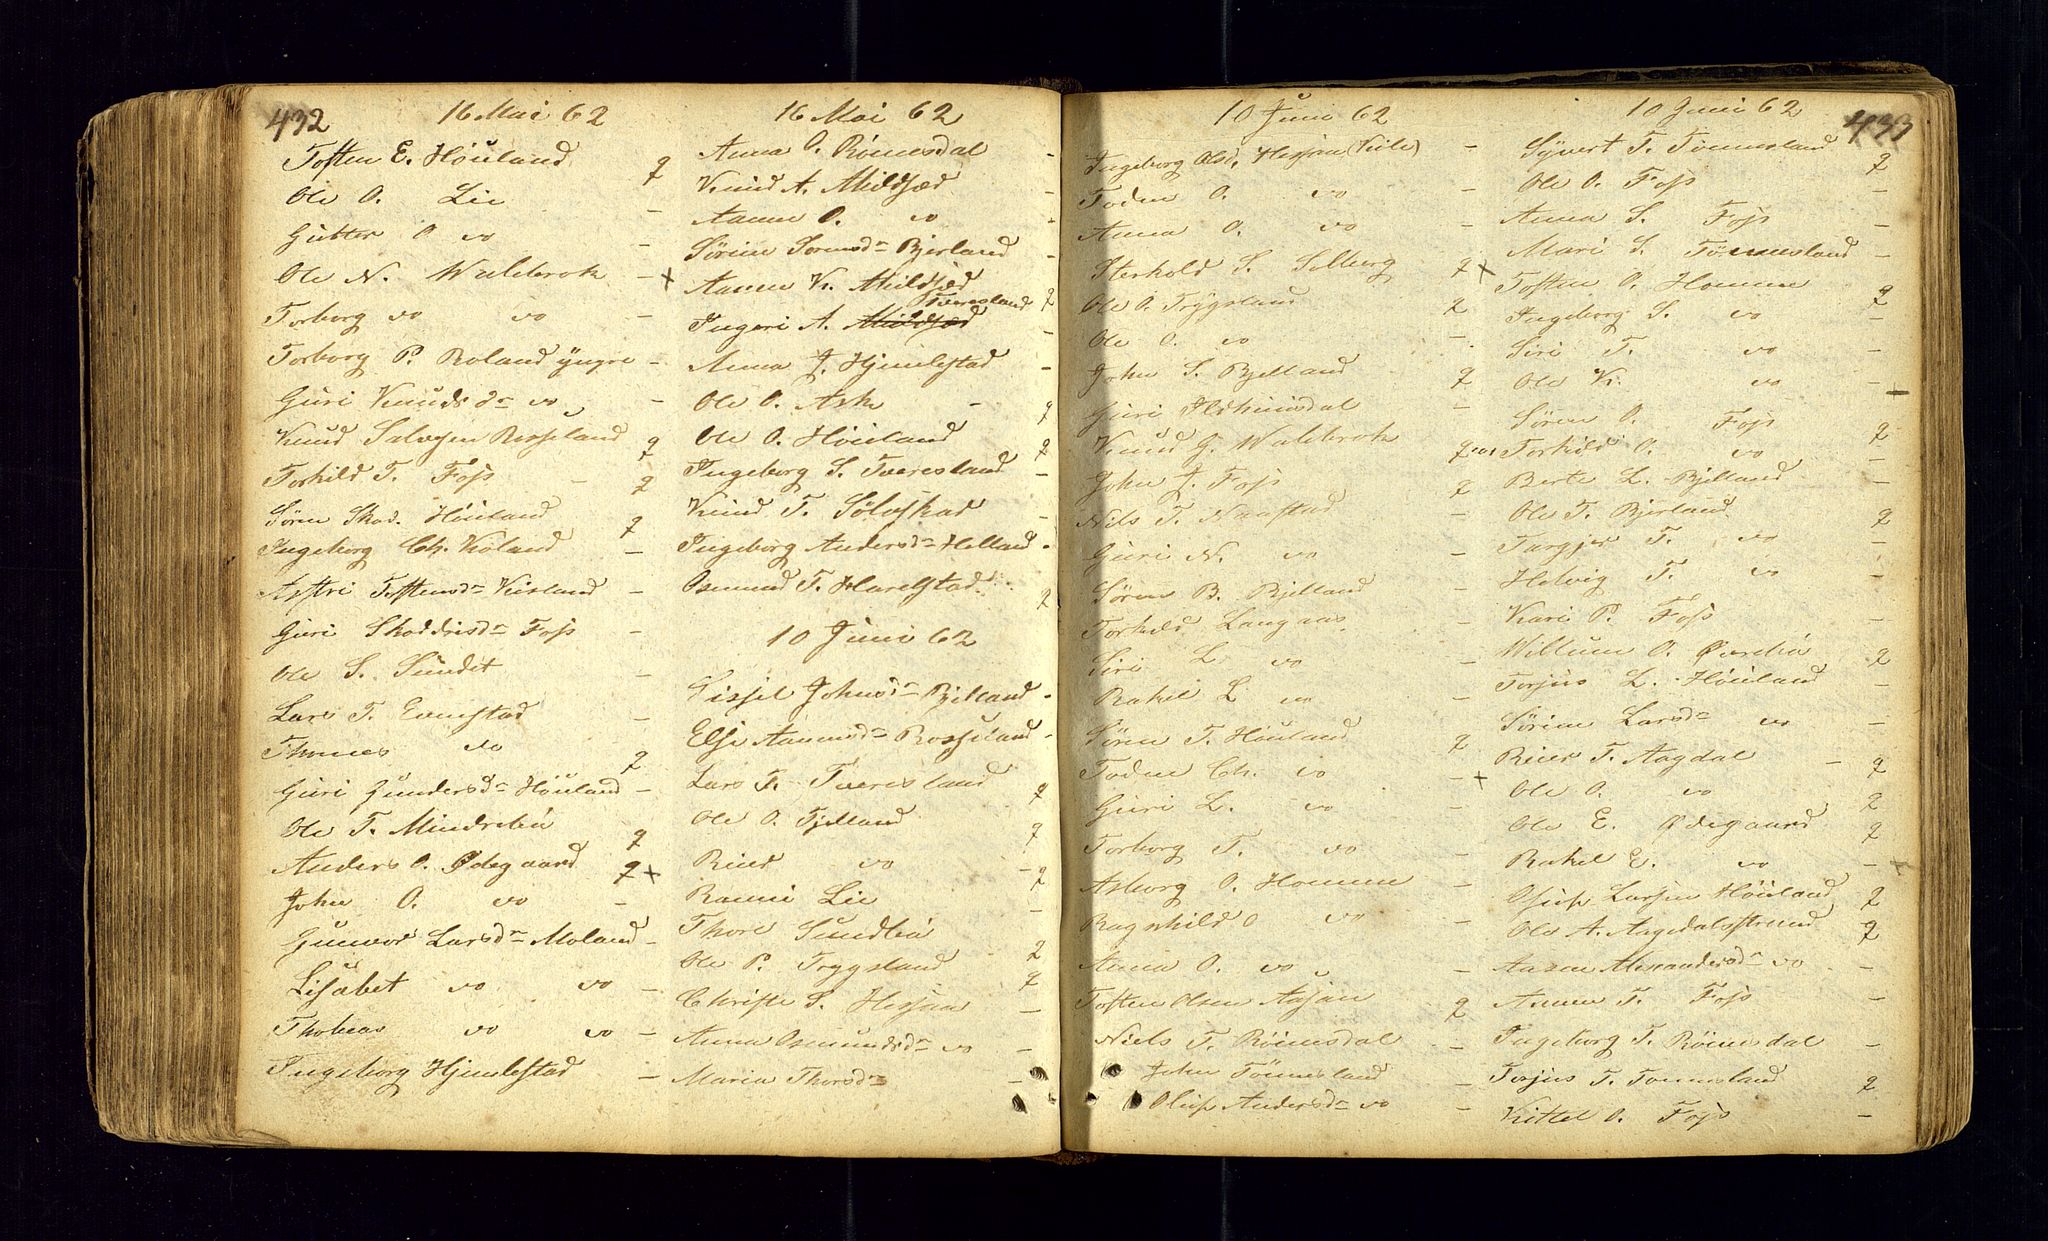 432
16 Mai 62
Tosten E. Höuland 2
Ole O. Lie -
Gutter O vo -
Ole N. Waldbrok - x
Torborg vo vo -
Torborg P. Roland yngre -
Guri Knuds dr vo -
Knud Salvesen Rosseland 2
Torkild T. Foss - 2
Sören Skad. Höuland 2
Ingeborg Ch. Kvoland -
Astri Tostensdr Kisland -
Guri Skoddrisdr Foss -
Ole S. Sundet -
Lars T. Evenstad -
Thomes vo 2
Guri Gundersdr Höuland -
Ole T. Mindrebö 2
Anders O. Ødegaard 2 x
John O. vo -
Gunvor Larsdr Moland -
Lisabet vo vo -
Thobias vo vo -
Ingeborg Hjemlestad -
16 Mai 62
Anna O. Römesdal -
Knud A. Mildsæd -
Aanne O. vo -
Sörine Sörensdr Bjerland -
Aanon K. Mildsæd 2
Tveresland
Ingeri A. Mildsæd -
Anna J. Hjemlestad -
Ole O. Ask - 2
Ole O. Höuland 2
Ingeborg S. Tveresland -
Knud T. Sölvskad -
Ingeborg Andersdr Helland -
Osmund T. Harelstad 2
10 Juni 62
Sissel Johnsdr Bjelland -
Else Aanensdr Rosseland -
Lars T. Tveresland 2
Ole O. Fjelland 2
Reier vo - 2
Ranni Lie -
Thore Sundbö 2
Ole P. Trygsland 2
Christi S. Hesjaa -
Anna Osmundsdr vo -
Maria Thorsdr -
10 Juni 62
Ingeborg Olsd. Hesjaa -
Toden O. vo -
Anna O. vo -
Sterkold S. Solberg 2 x
Ole O. Trygsland 2
Ole O. vo -
John S. Bjelland 2
Guri Ildhunsdal -
Knud G. Waldbrok 2
John J. Foss 2
Nils T. Naastad -
Guri N. vo -
Sören B. Bjelland -
Torkild Langaas -
Siri L. vo -
Rakel L vo -
Sören T. Höuland 2
Toden Ch. vo - x
Guri L. vo -
Torborg T. vo -
Asborg O. Homme -
Ragnhild O vo -
Anna O. vo -
Tosten Olsen Aasjan 2
Niels T. Römesdal -
John Tönnesland -
Oluf Andersdr vo -
10 Juni 62
433
Syvert T. Tönnesland 2
Ole O. Foss -
Anna S. Foss -
Mari S. Tönnesland -
Tosten O. Homme 2
Ingeborg S. vo -
Siri T. vo -
Ole K. vo -
Sören O. Foss 2
Torkild O. vo -
Berte L. Bjelland -
Ole T. Bjerland 2
Targjer T. vo -
Helvig T. vo -
Kari P. Foss -
Willum O. Øvrebö 2
Torjus L. Höuland -
Sörine Larsdr vo -
Reier T. Aagdal - 2
Ole O. vo 2
Ole E. Ødegaard 2
Rakel E. vo -
Larsen Höuland 2
Ole A. Aagedalsstrand 2
Aasne Alexandersdr vo -
Anne T. Foss -
Ingeborg T. Römesdal -
Torjus T. Tönnesland 2
Kittel O. Foss -